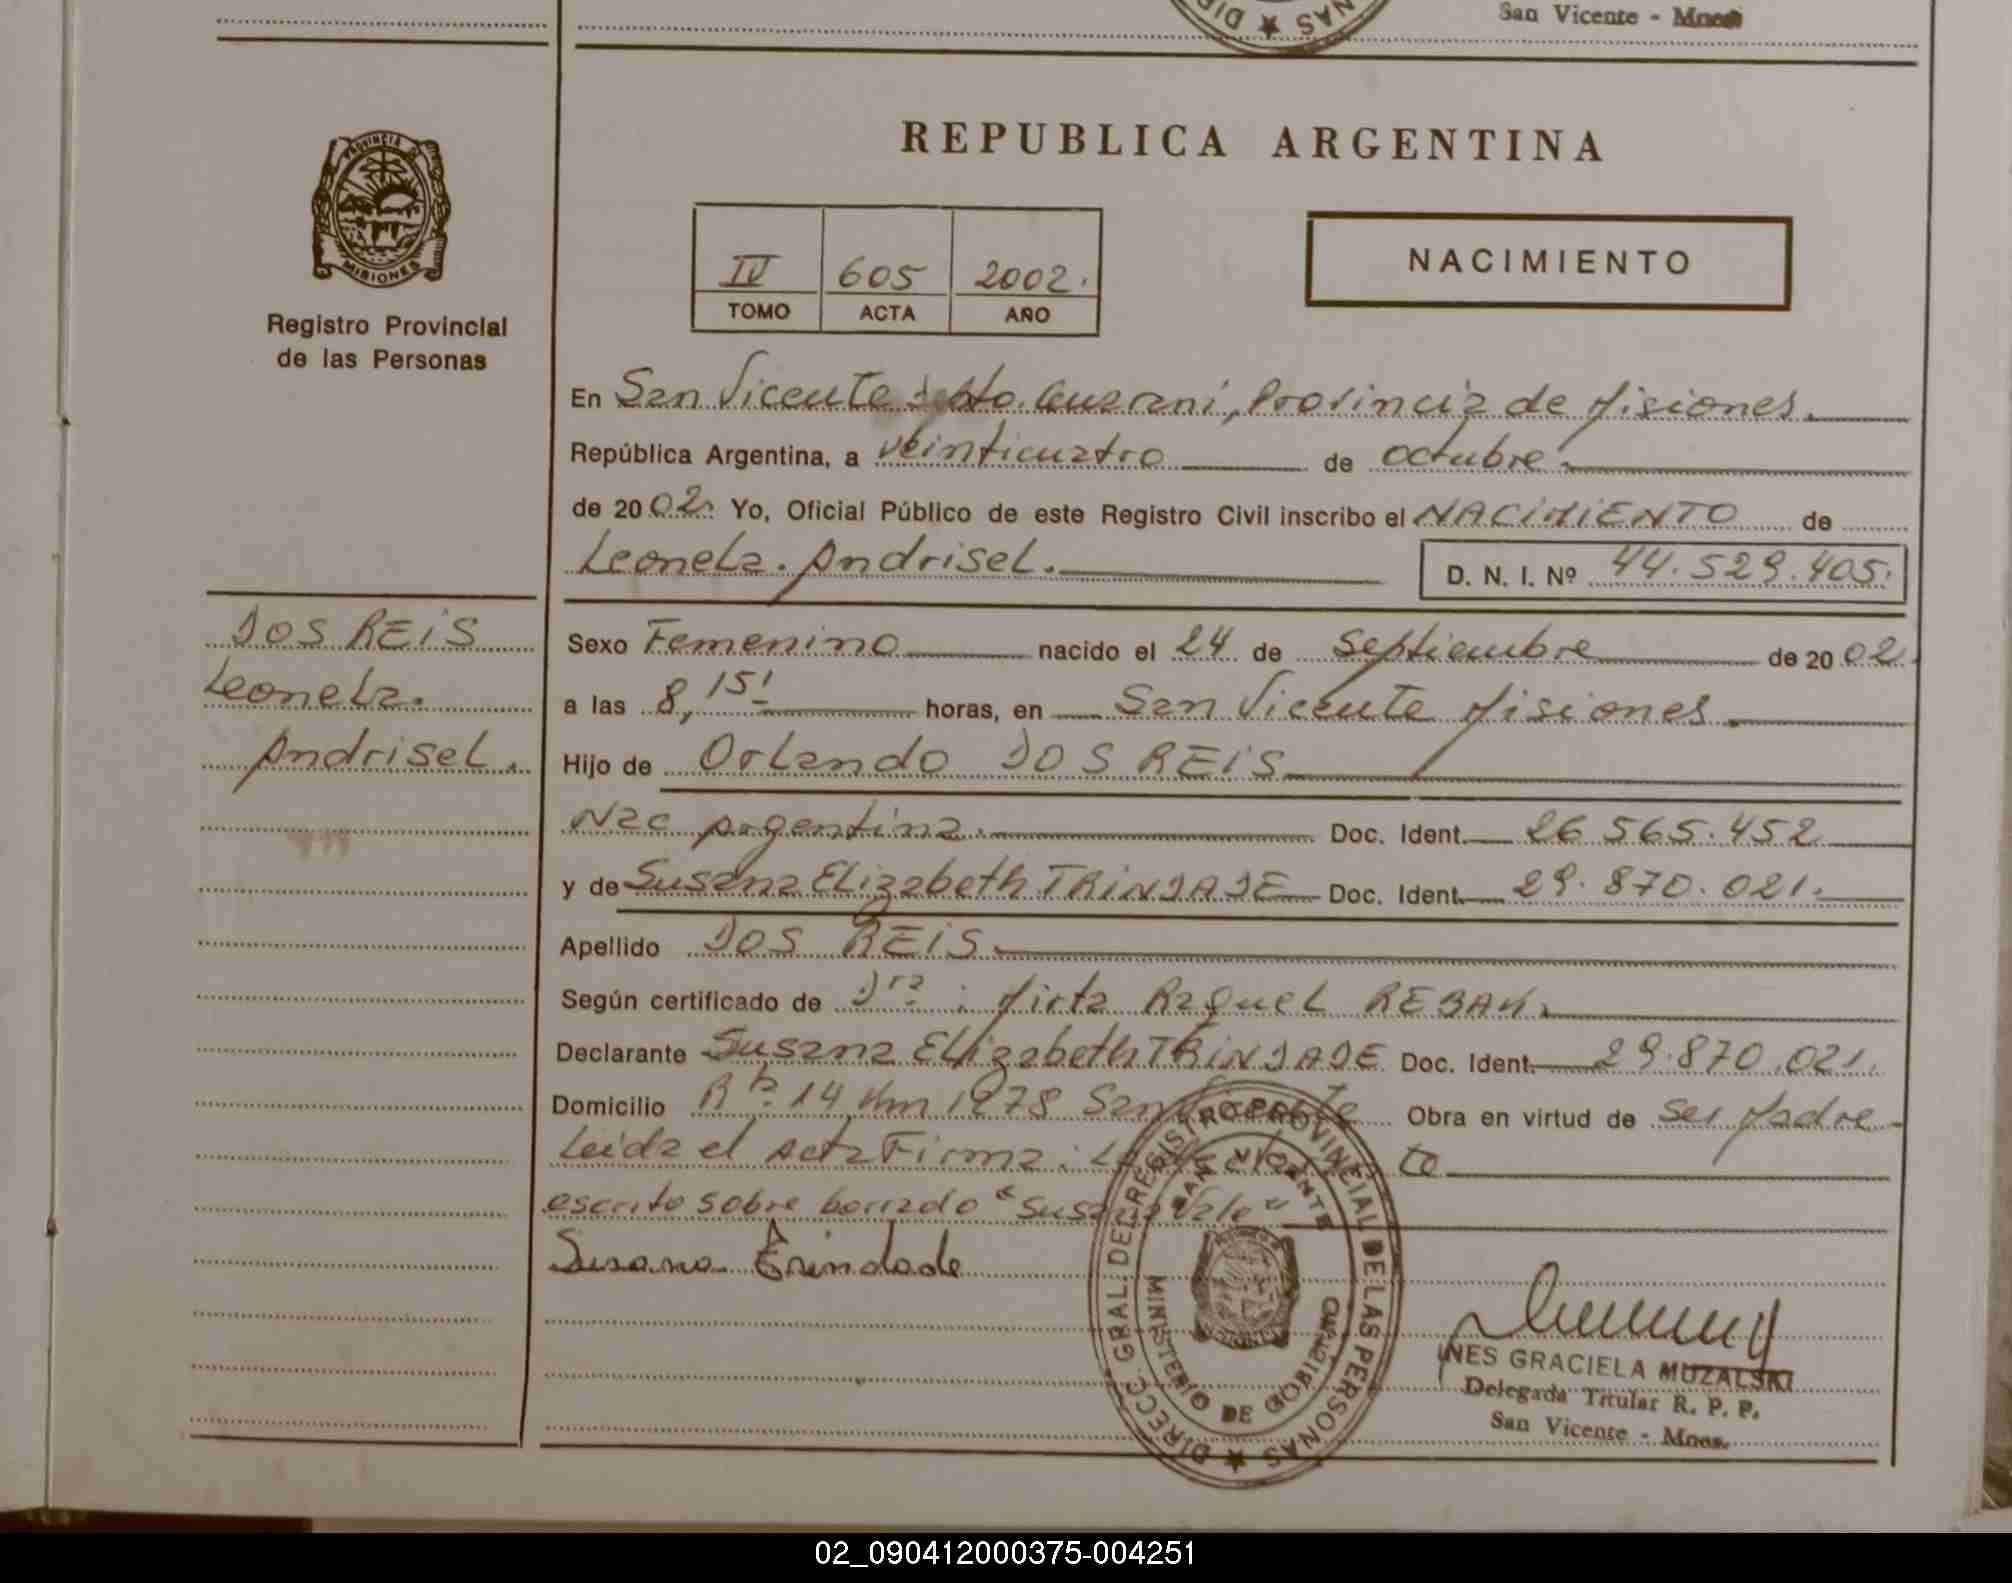 San Vicente - Mnes
REPUBLICA ARGENTINA
PROVINCIA DE
MISIONES
Registro Provincial
de las Personas
IV 605 2002.
TOMO ACTA AÑO
NACIMIENTO
En San Vicente dpto. Guarani, Provincia de Misiones.
República Argentina, a veinticuatro de octubre
de 2002. Yo, Oficial Público de este Registro Civil inscribo el NACIMIENTO de
Leonela. Andrisel.
D. N. I. Nº 44.529.405.
DOS REIS
Leonela.
Andrisel.
Sexo Femenino nacido el 24 de Septiembre de 2002.
a las 8,15' horas, en San Vicente Misiones.
Hijo de Orlando DOS REIS
Nac Argentina. Doc. Ident. 26.565.452
y de Susana Elizabeth TRINDADE Doc. Ident. 29.870.021.
Apellido DOS REIS
Según certificado de Dra. Mirta Raquel REBAK.
Declarante Susana Elizabeth TRINDADE Doc. Ident. 29.870.021.
Domicilio Rta. 14 Km 1278 San Vicente Obra en virtud de ser Madre
Leida el Acta Firma: La te
escrito sobre borrado "Susana" Vale"
Susana Trindade
DIRECC. GRAL. DEL REGISTRO PROVINCIAL DE LAS PERSONAS
SAN VICENTE
MINISTERIO DE GOBIERNO
INES GRACIELA MUZALSKI
Delegada Titular R. P. P.
San Vicente - Mnes.
02_090412000375-004251